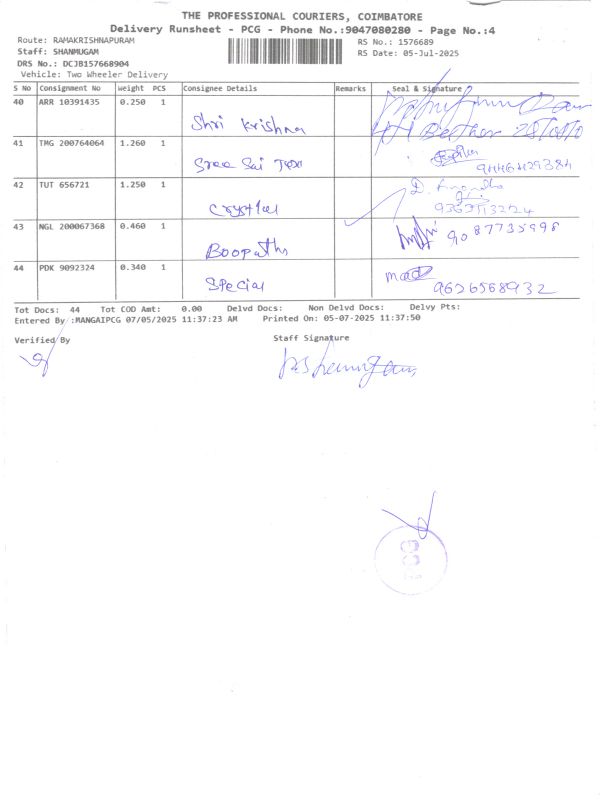 THE PROFESSIONAL COURIERS, COIMBATORE
Delivery Runsheet - PCG - Phone No.:9047080280 - Page No.:4
Route: RAMAKRISHNAPURAM
RS No.: 1576689
Staff: SHANMUGAM
RS Date: 05-Jul-2025
DRS No.: DCJB157668904
Vehicle: Two Wheeler Delivery
S No Consignment No Weight PCS Consignee Details Remarks Seal & Signature
40 ARR 10391435 0.250 1 Shri Krishna
41 TMG 200764064 1.260 1 Sree Sai Tex
42 TUT 656721 1.250 1 Crystal
43 NGL 200067368 0.460 1 Boopathi 9087735998
44 PDK 9092324 0.340 1 Special 9626568932
Tot Docs: 44 Tot COD Amt: 0.00 Delvd Docs: Non Delvd Docs: Delvy Pts:
Entered By :MANGAIPCG 07/05/2025 11:37:23 AM Printed On: 05-07-2025 11:37:50
Verified By
Staff Signature